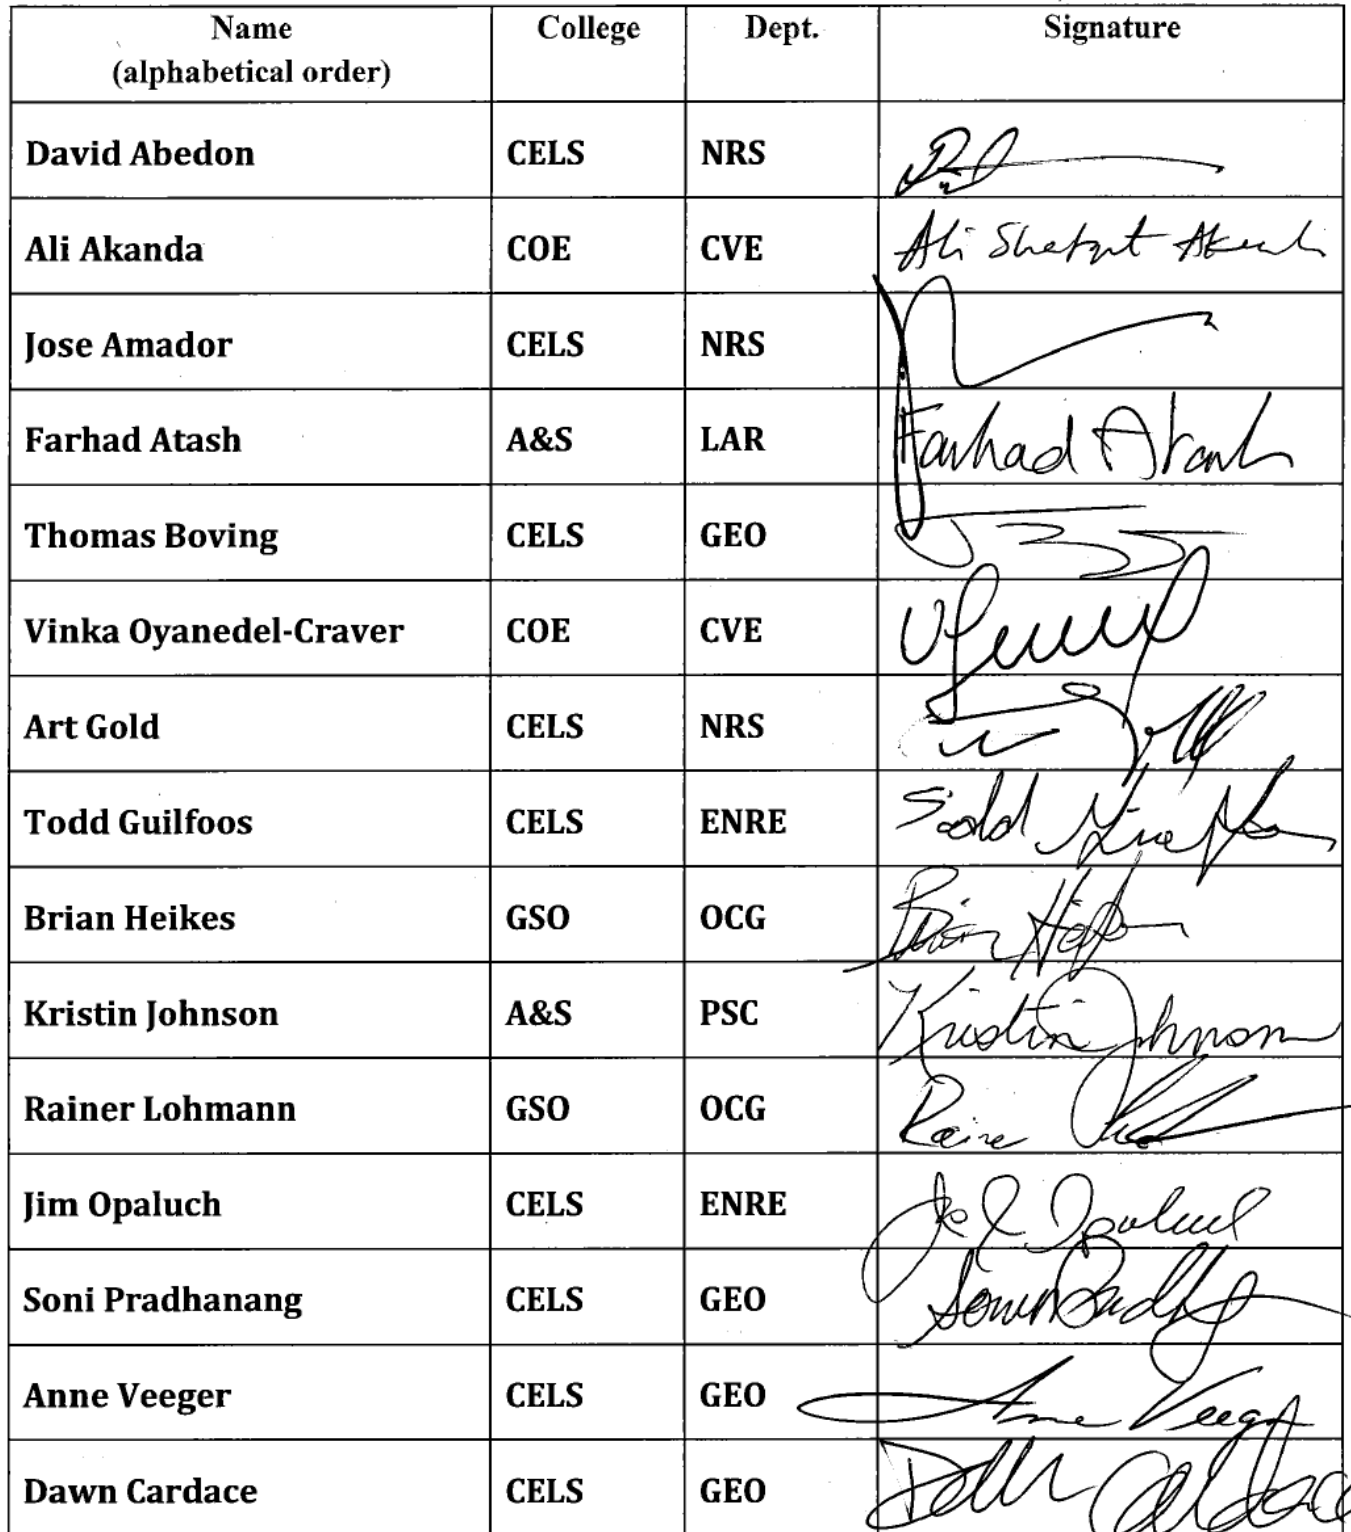 Name College Dept. Signature
(alphabetical order)
David Abedon CELS NRS
Ali Akanda COE CVE Ali
Jose Amador CELS NRS
Farhad Atash A&S LAR Farhad Atash
Thomas Boving CELS GEO
Vinka Oyanedel-Craver COE CVE
Art Gold CELS NRS
Todd Guilfoos CELS ENRE
Brian Heikes GSO OCG Brian
Kristin Johnson A&S PSC Kristin Johnson
Rainer Lohmann GSO OCG
Jim Opaluch CELS ENRE Opaluch
Soni Pradhanang CELS GEO
Anne Veeger CELS GEO Anne Veeger
Dawn Cardace CELS GEO Cardace